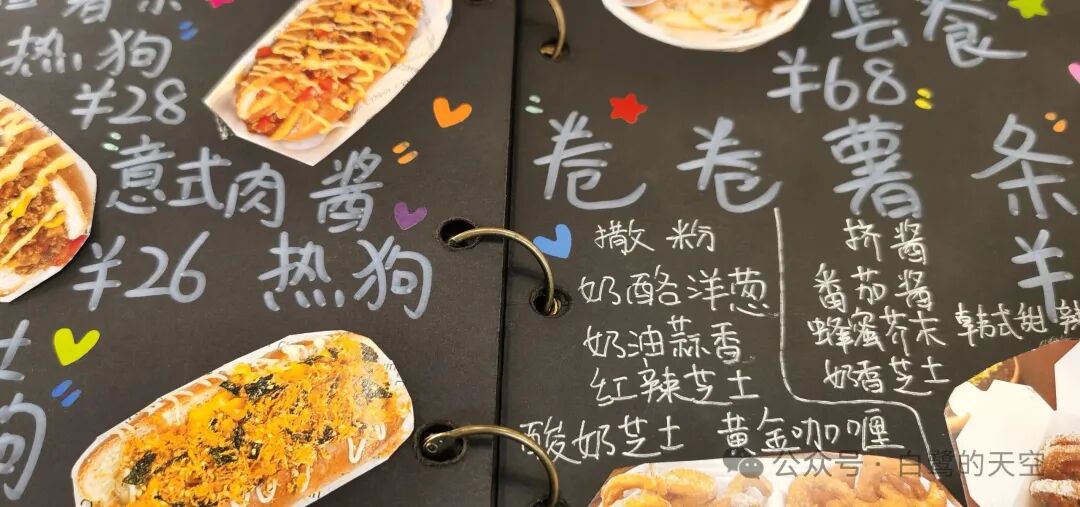 热狗
¥28
意式肉酱
¥26 热狗
套餐
¥68
卷卷薯条
¥
撒粉
奶酪洋葱
奶油蒜香
红辣芝士
酸奶芝士 黄金咖喱
挤酱
番茄酱
蜂蜜芥末 韩式甜辣
奶香芝士
公众号·白鹭的天空